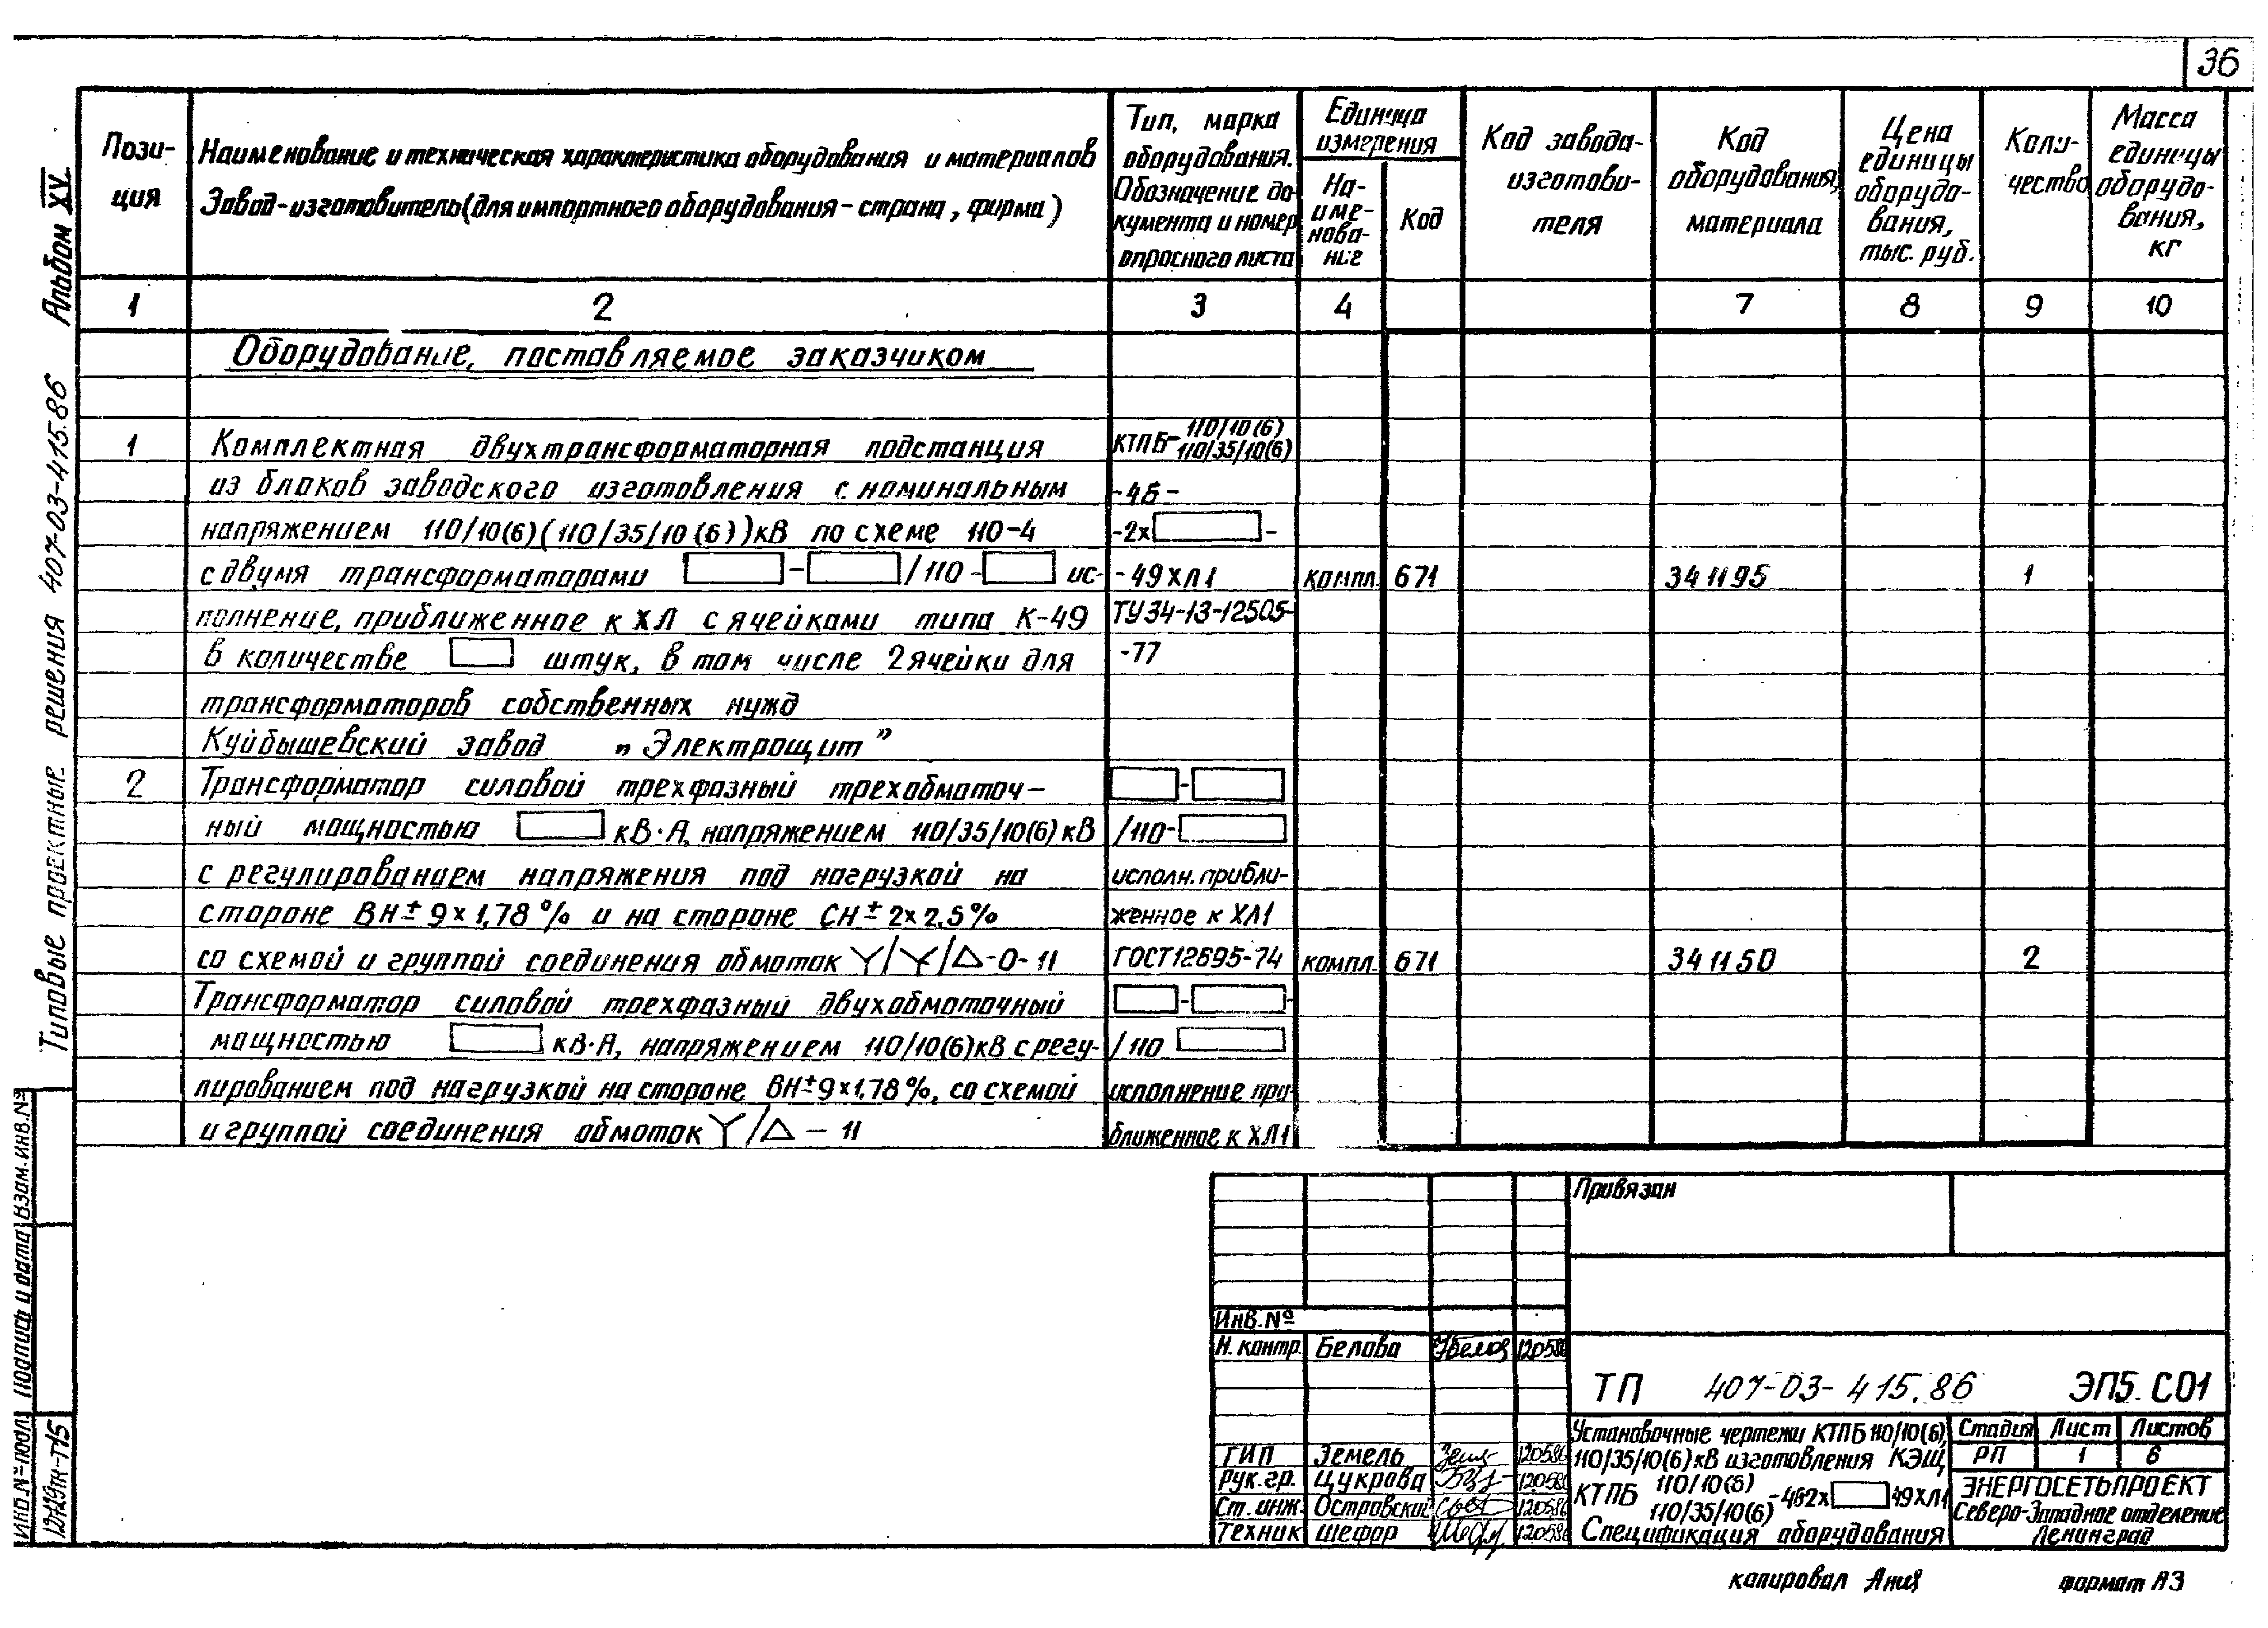 36
Альбом XV
Типовые проектные решения 407-03-415.86
Пози-
ция
Наименование и техническая характеристика оборудования и материалов
Завод-изготовитель (для импортного оборудования - страна, фирма)
Тип, марка
оборудования.
Обозначение до-
кумента и номер
опросного листа
Единица
измерения
На-
име-
нова-
ние
Код
Код завода-
изготови-
теля
Код
оборудования,
материала
Цена
единицы
оборудо-
вания,
тыс. руб.
Коли-
чество
Масса
единицы
оборудо-
вания,
кг
1 2 3 4 7 8 9 10
Оборудование, поставляемое заказчиком
1 Комплектная двухтрансформаторная подстанция КТПБ-110/10(6) 110/35/10(6)
из блоков заводского изготовления с номинальным -4Б-
напряжением 110/10(6)(110/35/10(6))кВ по схеме 110-4 -2х -
с двумя трансформаторами - /110- ис- -49ХЛ1 компл. 671 341195 1
полнение, приближенное к ХЛ с ячейками типа К-49 ТУ34-13-12505-
в количестве штук, в том числе 2 ячейки для -77
трансформаторов собственных нужд
Куйбышевский завод „Электрощит”
2 Трансформатор силовой трехфазный трехобмоточ- -
ный мощностью кВ·А, напряжением 110/35/10(6)кВ /110-
с регулированием напряжения под нагрузкой на исполн. прибли-
стороне ВН±9×1,78% и на стороне СН±2×2,5% женное к ХЛ1
со схемой и группой соединения обмоток Y/Y/Δ-0-11 ГОСТ12695-74 компл. 671 341150 2
Трансформатор силовой трехфазный двухобмоточный - -
мощностью кВ·А, напряжением 110/10(6)кВ с регу- /110
лированием под нагрузкой на стороне ВН±9×1,78%, со схемой исполнение при-
и группой соединения обмоток Y/Δ-11 ближенное к ХЛ1
Взам. инв. №
Подпись и дата
Инв. № подл.
12429тм-т15
Привязан
Инв. №
Н. контр. Белова 120586
ТП 407-03-415.86 ЭП5.С01
ГИП Земель 120586
Рук. гр. Цукрова 120586
Ст. инж. Островский 120586
Техник Шефор 120586
Установочные чертежи КТПБ 110/10(6),
110/35/10(6)кВ изготовления КЭЩ
КТПБ 110/10(6) 110/35/10(6) -4Б2х 49ХЛ1
Спецификация оборудования
Стадия Лист Листов
РП 1 6
ЭНЕРГОСЕТЬПРОЕКТ
Северо-Западное отделение
Ленинград
копировал Ания
формат А3